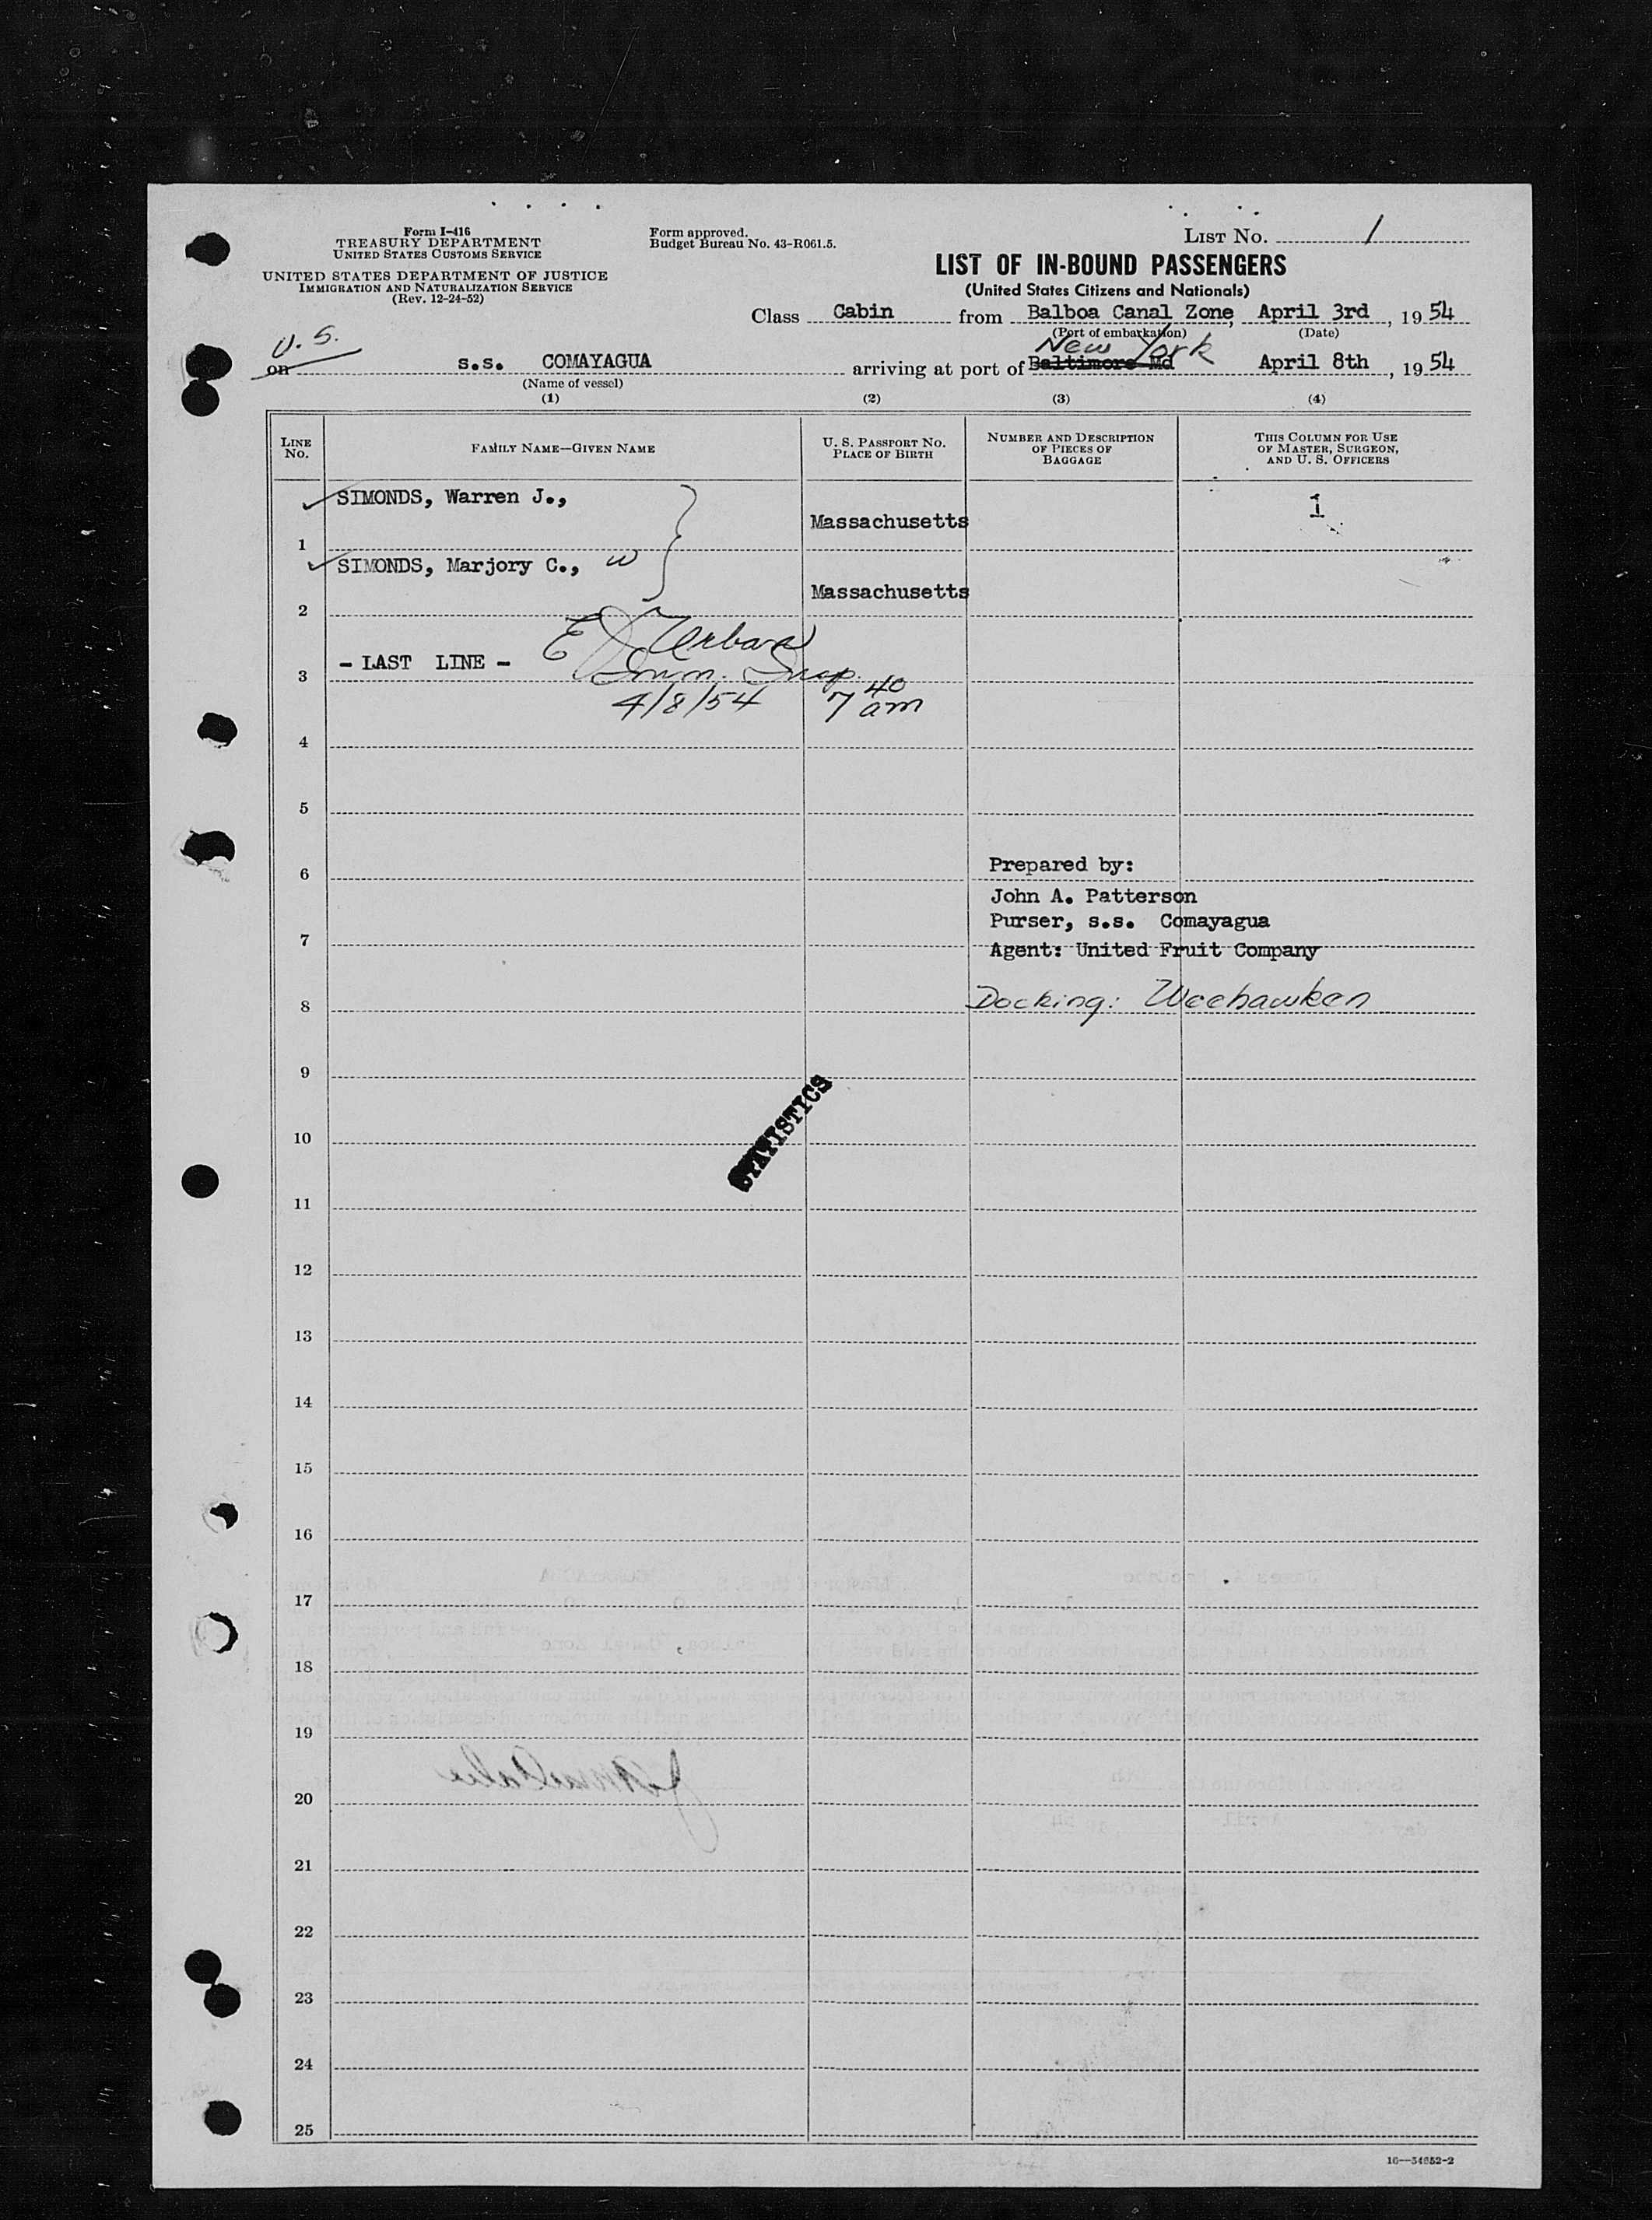 Form I-416
TREASURY DEPARTMENT
UNITED STATES CUSTOMS SERVICE
UNITED STATES DEPARTMENT OF JUSTICE
IMMIGRATION AND NATURALIZATION SERVICE
(Rev. 12-24-52)
Form approved.
Budget Bureau No. 43-R061.5.
LIST NO. 1
LIST OF IN-BOUND PASSENGERS
(United States Citizens and Nationals)
Class Cabin from Balboa Canal Zone, April 3rd, 19 54
(Port of embarkation) (Date)
U.S. New York
on s.s. COMAYAGUA arriving at port of Baltimore Md April 8th, 19 54
(Name of vessel)
(1) (2) (3) (4)
LINE NO. FAMILY NAME—GIVEN NAME U. S. PASSPORT NO. PLACE OF BIRTH NUMBER AND DESCRIPTION OF PIECES OF BAGGAGE THIS COLUMN FOR USE OF MASTER, SURGEON, AND U. S. OFFICERS
SIMONDS, Warren J., 1
Massachusetts
1
SIMONDS, Marjory C., w
Massachusetts
2
E Urban
- LAST LINE -
3
Imm. Insp.
4/8/54 7 40 am
4
5
Prepared by:
6
John A. Patterson
Purser, s.s. Comayagua
7
Agent: United Fruit Company
Docking: Weehawken
8
9
STATISTICS
10
11
12
13
14
15
16
17
18
19
20
21
22
23
24
25
16—54652-2